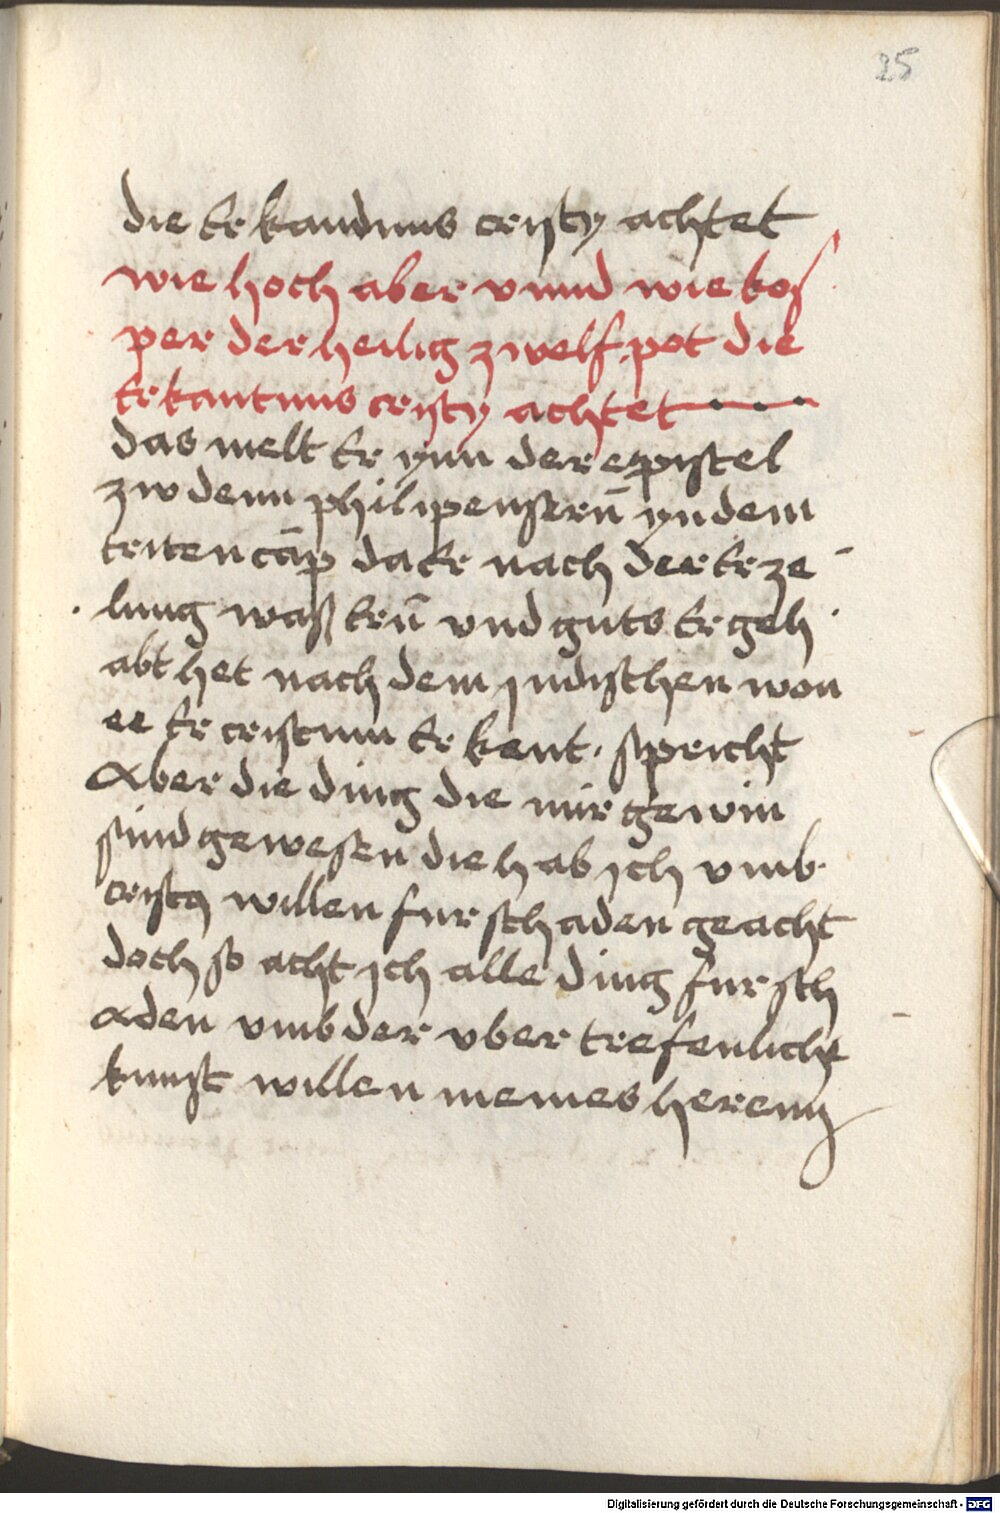 25
die Erkandnus cristy achtet
wie hoch aber vnnd wie kos
per der heilig zwelf pot die
Erkantnus cristy achtet
das melt Er ynn der epistel
zw denn philipensern̄ yn dem
triten cap̄ da Er nach der Erze
lung waß Ern̄ vnd guts Er geh
abt het nach dem Judischen won
ee Er cristum Er kent. spricht
Aber die ding die mir gewin
sind gewesen die hab ich vmb
cristy willen fur schaden geacht
doch so acht ich alle ding fur sch
aden vmb der vber trefenlich
kunst willen meines herenn
Digitalisierung gefördert durch die Deutsche Forschungsgemeinschaft - DFG